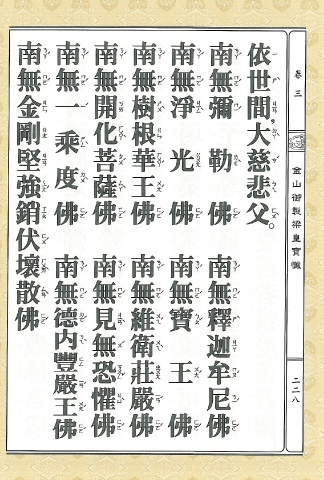 卷三
金山御製梁皇寶懺
二二八
依世間，大慈悲父。
南無彌勒佛 南無釋迦牟尼佛
南無淨光佛 南無寶王佛
南無樹根華王佛 南無維衛莊嚴佛
南無開化菩薩佛 南無見無恐懼佛
南無一乘度佛 南無德內豐嚴王佛
南無金剛堅強銷伏壞散佛